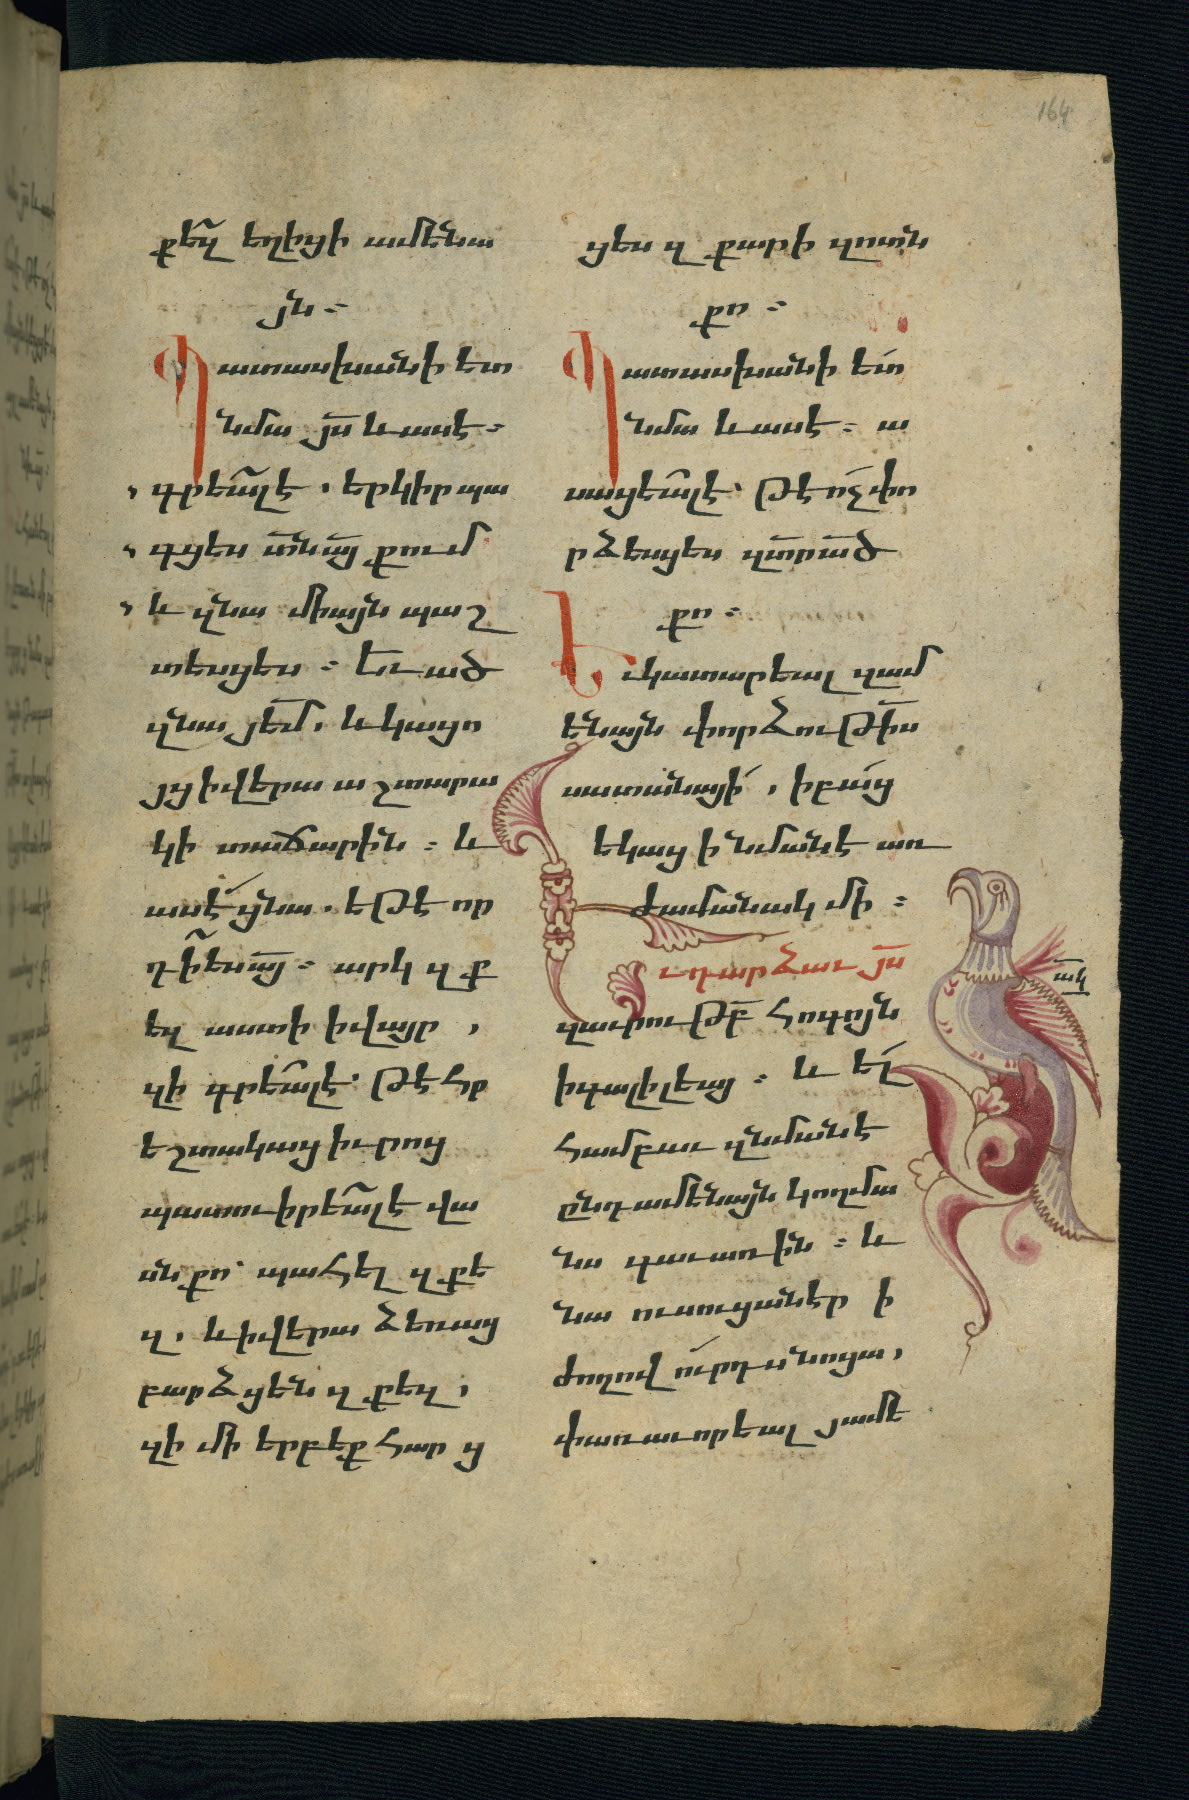 164
քեզ եղիցի ամենա
յն։
Պատասխանի ետ
նմա յս և ասէ։
գրեալ է. երկիր պա
գցես տն այ քում
և զնա միայն պաշ
տեսցես։ Եւ ած
զնա յեմ, և կացո
յց ի վերա աշտարա
կի տաճարին։ և
ասէ ցնա. եթէ որ
դի ես այ։ արկ զք
եզ աստի ի վայր,
զի գրեալ է. թէ հր
եշտակաց իւրոց
պատուիրեալ է վա
սն քո՝ պահել զքե
զ. և ի վերա ձեռաց
բարձցեն զքեզ,
զի մի երբեք հար ց
ցես զքարի զոտն
քո։
Պատասխանի ետ
նմա և ասէ։ ա
սացեալ է. թէ ոչ փո
րձեսցես զտր ած
քո։
Եւ կատարեալ զամ
ենայն փորձութիս
սատանայի, ի բաց
եկաց ի նմանէ առ
ժամանակ մի։
Եւ դարձաւ յս
զաւրութբ հոգոյն
ի գալիլեայ։ և ել
համբաւ զնմանէ
ընդ ամենայն կողմա
նս գաւառին։ և
նա ուսուցանէր ի
ժողովուրդս նոցա,
փառաւորեալ յամե
ակ